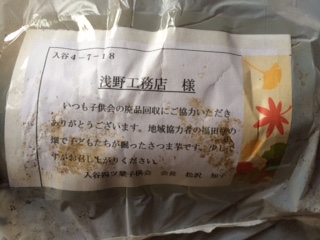 入谷4-7-18
浅野工務店 様
いつも子供会の廃品回収にご協力いただき
ありがとうございます。地域協力者の福田様の
畑で子どもたちが掘ったさつま芋です。少し
ですがお召し上がりください。
入谷 子供会 会長 松沢